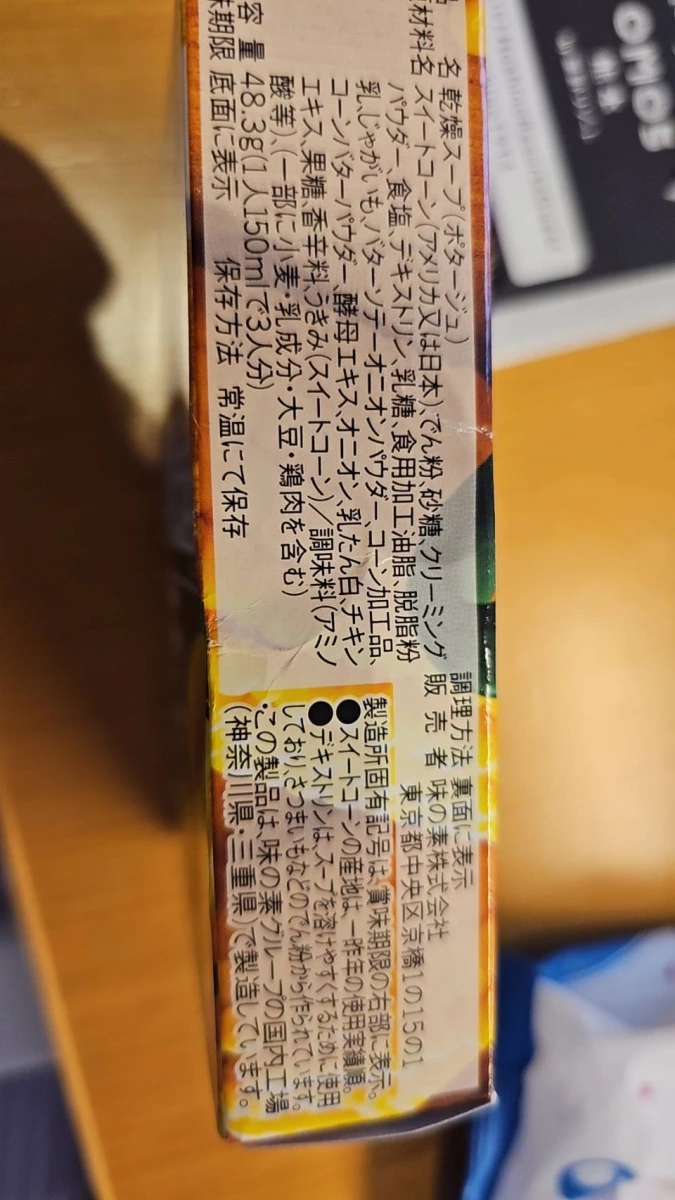 名 乾燥スープ(ポタージュ)
材料名 スイートコーン(アメリカ又は日本)、でん粉、砂糖、クリーミング
パウダー、食塩、デキストリン、乳糖、食用加工油脂、脱脂粉
乳、じゃがいも、バターソテーオニオンパウダー、コーン加工品、
コーンバターパウダー、酵母エキス、オニオン、乳たん白、チキン
エキス、果糖、香辛料、うきみ(スイートコーン)/調味料(アミノ
酸等)、(一部に小麦・乳成分・大豆・鶏肉を含む)
容 量 48.3g(1人150mlで3人分)
味期限 底面に表示 保存方法 常温にて保存
調理方法 裏面に表示
販 売 者 味の素株式会社
東京都中央区京橋1の15の1
製造所固有記号は、賞味期限の右部に表示。
●スイートコーンの産地は、一昨年の使用実績順。
●デキストリンは、スープを溶けやすくするために使用
しており、さつまいもなどのでん粉から作られています。
・この製品は、味の素グループの国内工場
(神奈川県・三重県)で製造しています。